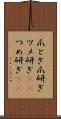 爪とぎ爪研ぎ
ツメ研ぎ
つめ研ぎ